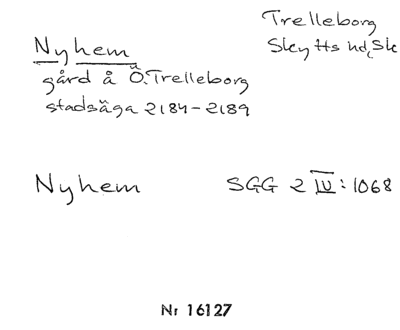 Trelleborg
Skytts hd, Sk
Nyhem
gård å Ö. Trelleborg
stadsäga 2184-2189
Nyhem SGG 2 IV:1068
Nr 16127